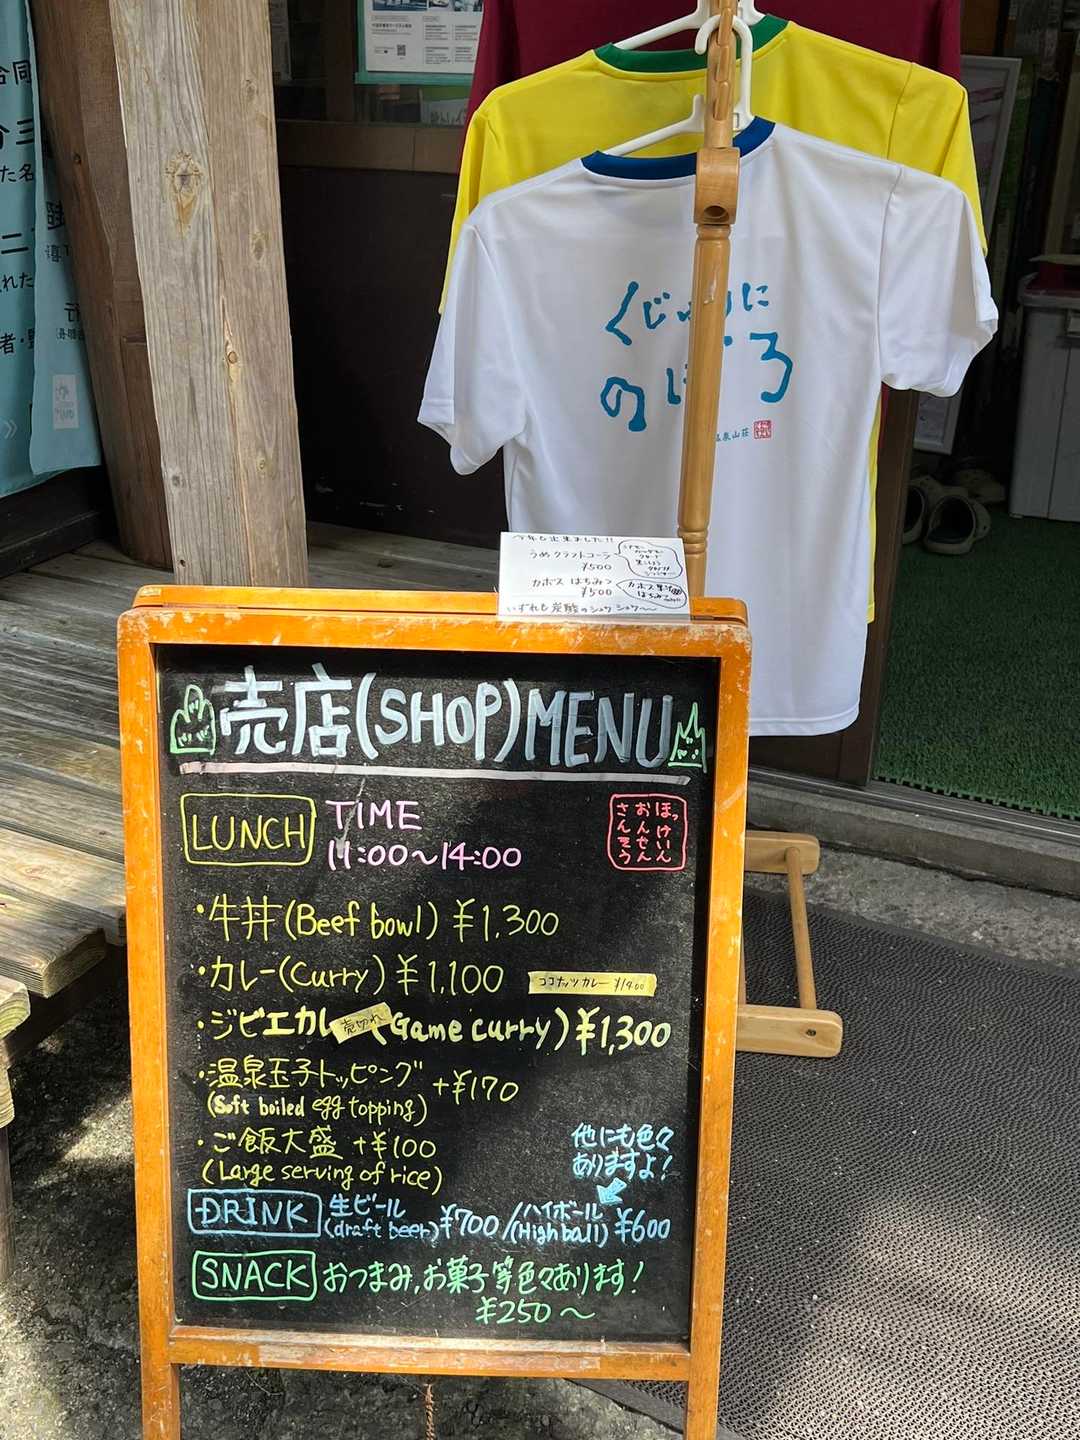 くじゅうに
のぼろ
泉山荘
今年も出来ました!!
うめクラフトコーラ
¥500
カボス はちみつ
¥500
カボス果汁
はちみつ
いずれも炭酸のシュワシュワ〜
売店(SHOP)MENU
LUNCH TIME
11:00〜14:00
ほっけいん
おんせん
さんそう
・牛丼(Beef bowl)¥1,300
・カレー(Curry)¥1,100
ココナッツカレー ¥1400
・ジビエカレ 売切れ (Game curry)¥1,300
・温泉玉子トッピング +¥170
(Soft boiled egg topping)
・ご飯大盛 +¥100
(Large serving of rice)
他にも色々
ありますよ!
DRINK 生ビール(draft beer)¥700/ハイボール(Highball)¥600
SNACK おつまみ,お菓子等色々あります!
¥250〜